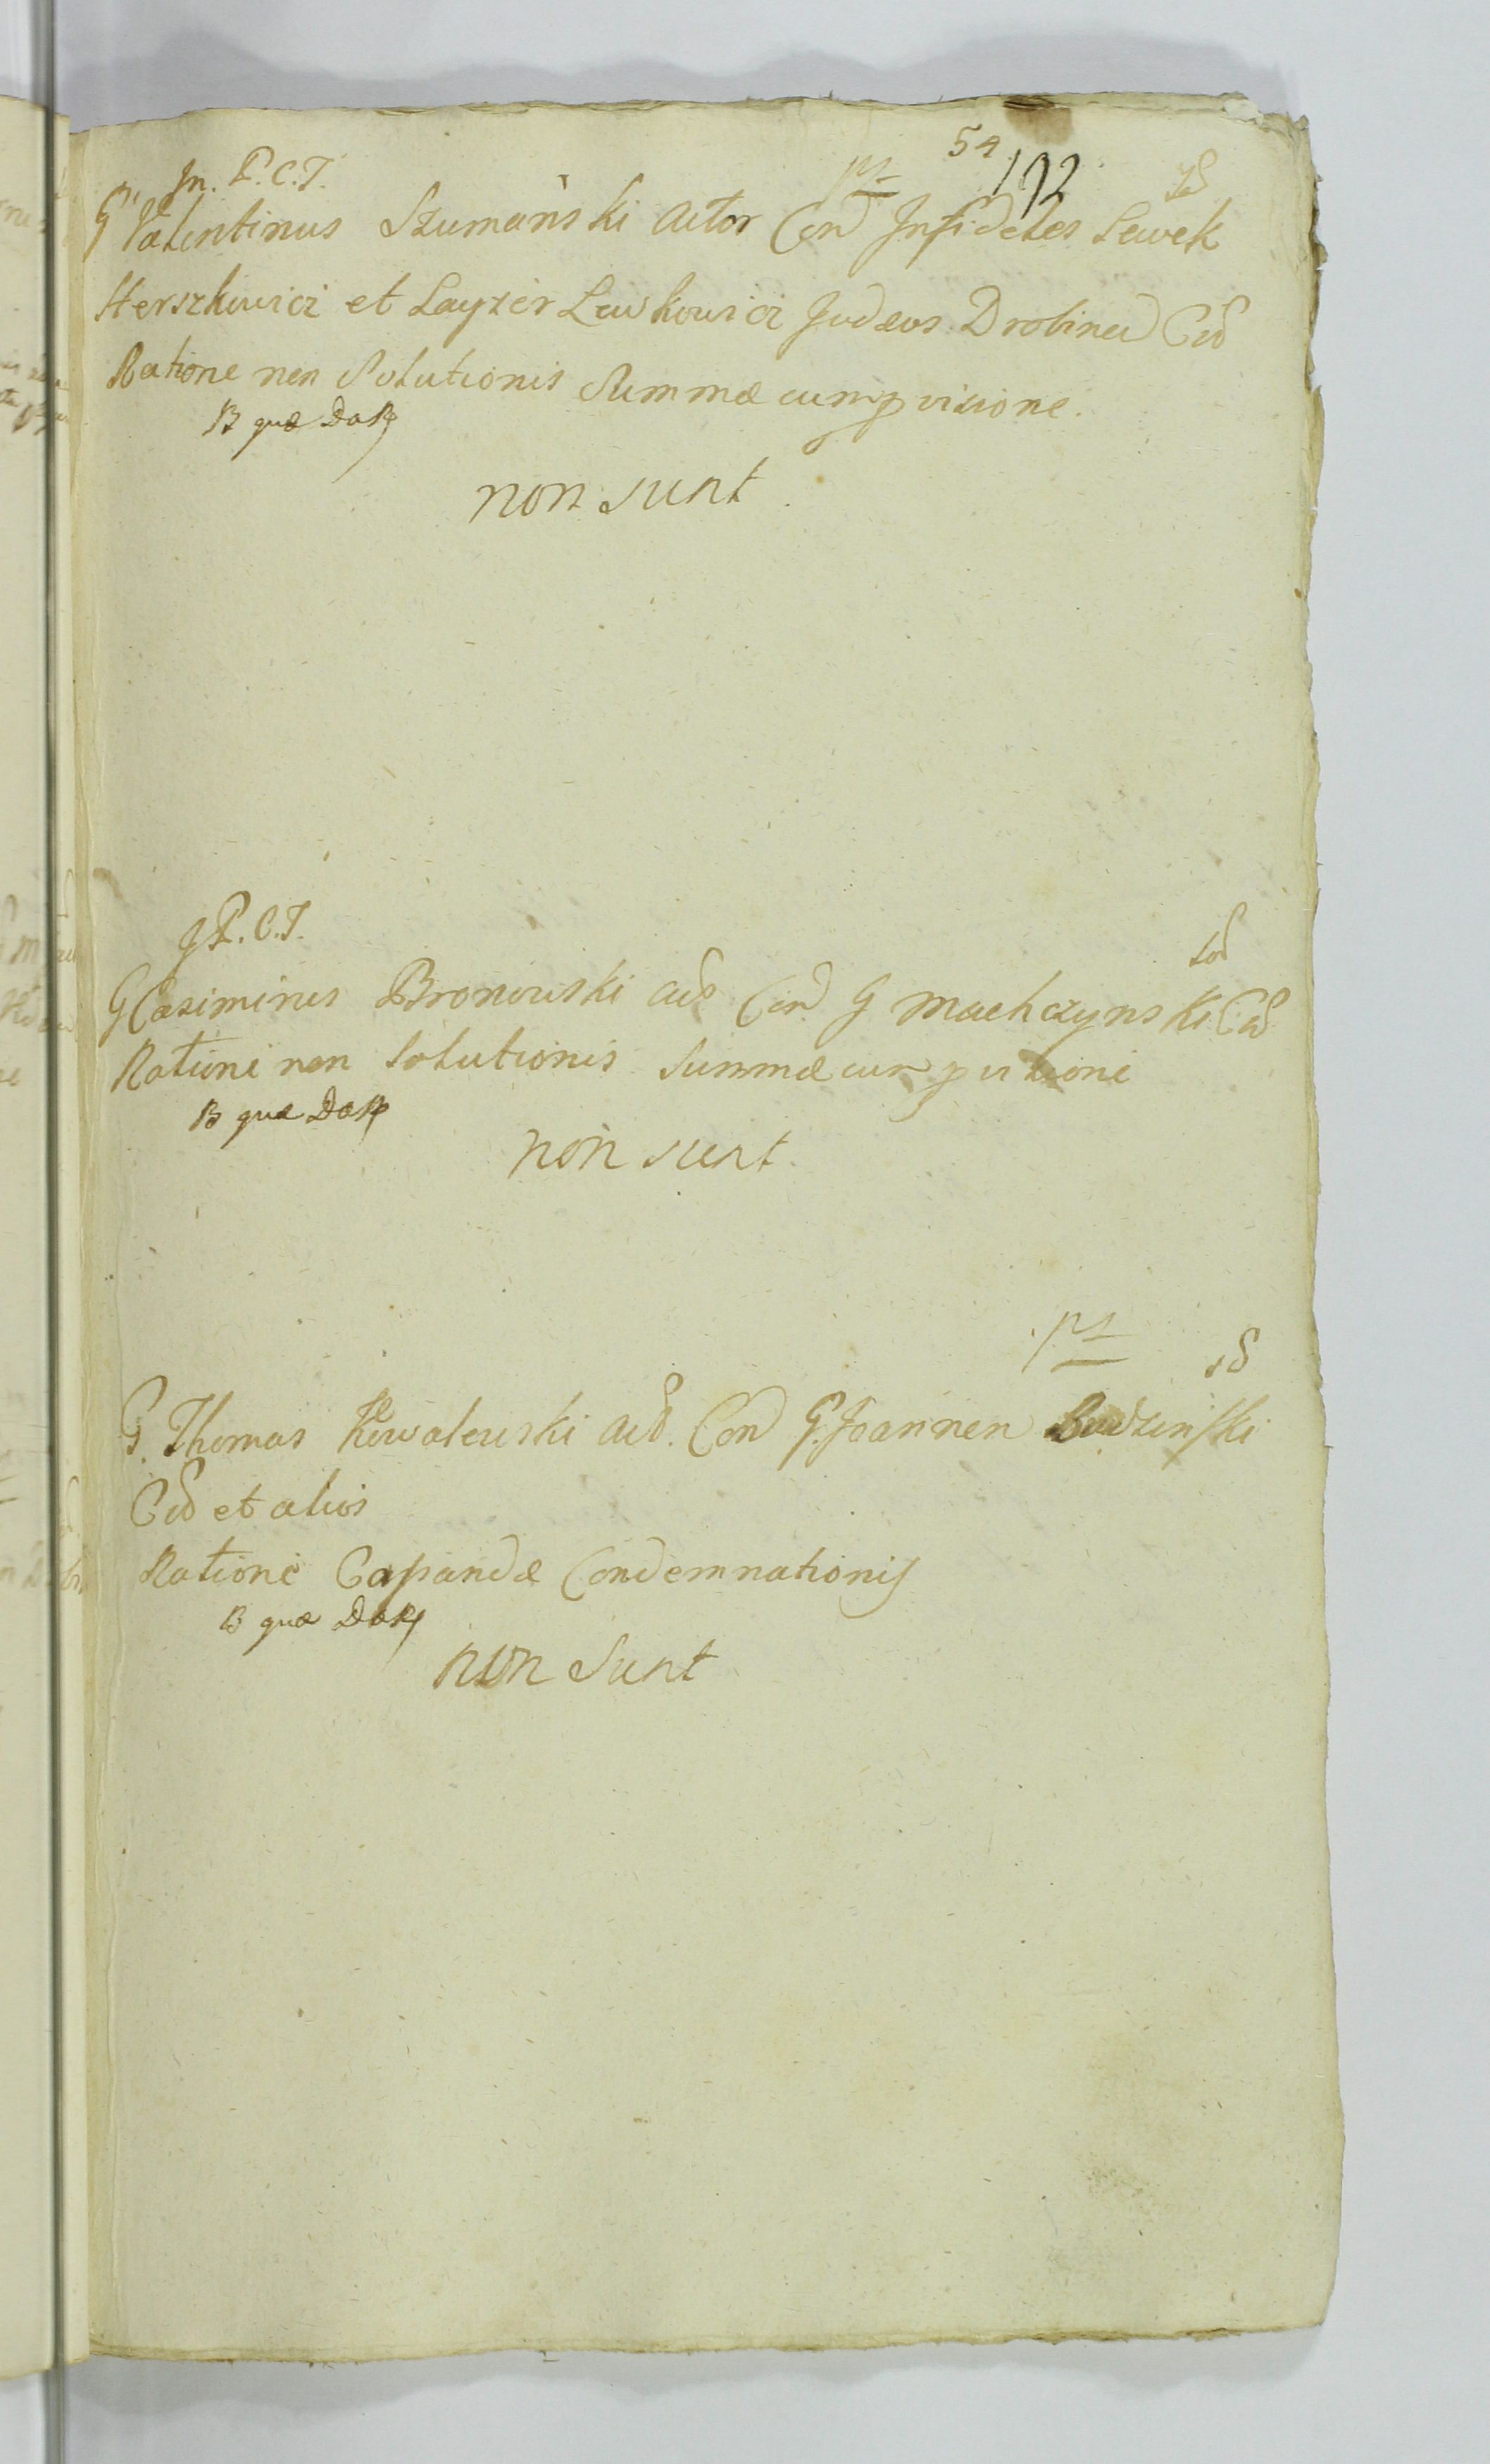 54
192
In. P.C.T.
G Valentinus Szumański Actor Con Infideles Lewek
Herszkowicz et Layzer Lewkowicz Judæos Drobinen Cit
Ratione non Solutionis Summæ cum pvisione.
B quæ
non sunt
J P.C.T.
G Casimirus Bronowski Act Con G Machczynski Cit
Ratione non Solutionis Summæ cum pvisione
B quæ
non sunt
ps
G. Thomas Kowalewski Act. Con G. Joannen Budzinski
Cit et alios
Ratione Capandæ Condemnationis
B quæ
non sunt